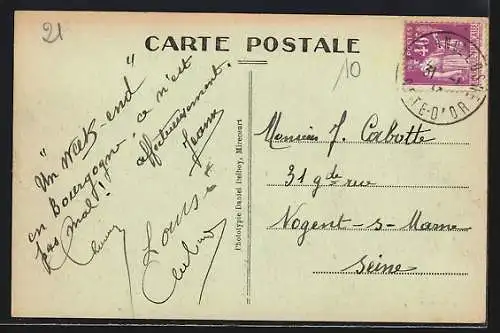 21
CARTE POSTALE
10
40
"Un Week-end"
en Bourgogne, ça n'est
pas mal!
affectueusement.
Jeanne
Louise
Phototypie Daniel Delboy, Mirecourt
Monsieur J. Cabotte
31 gde rue
Nogent-s-Marne
Seine
CÔTE-D'OR